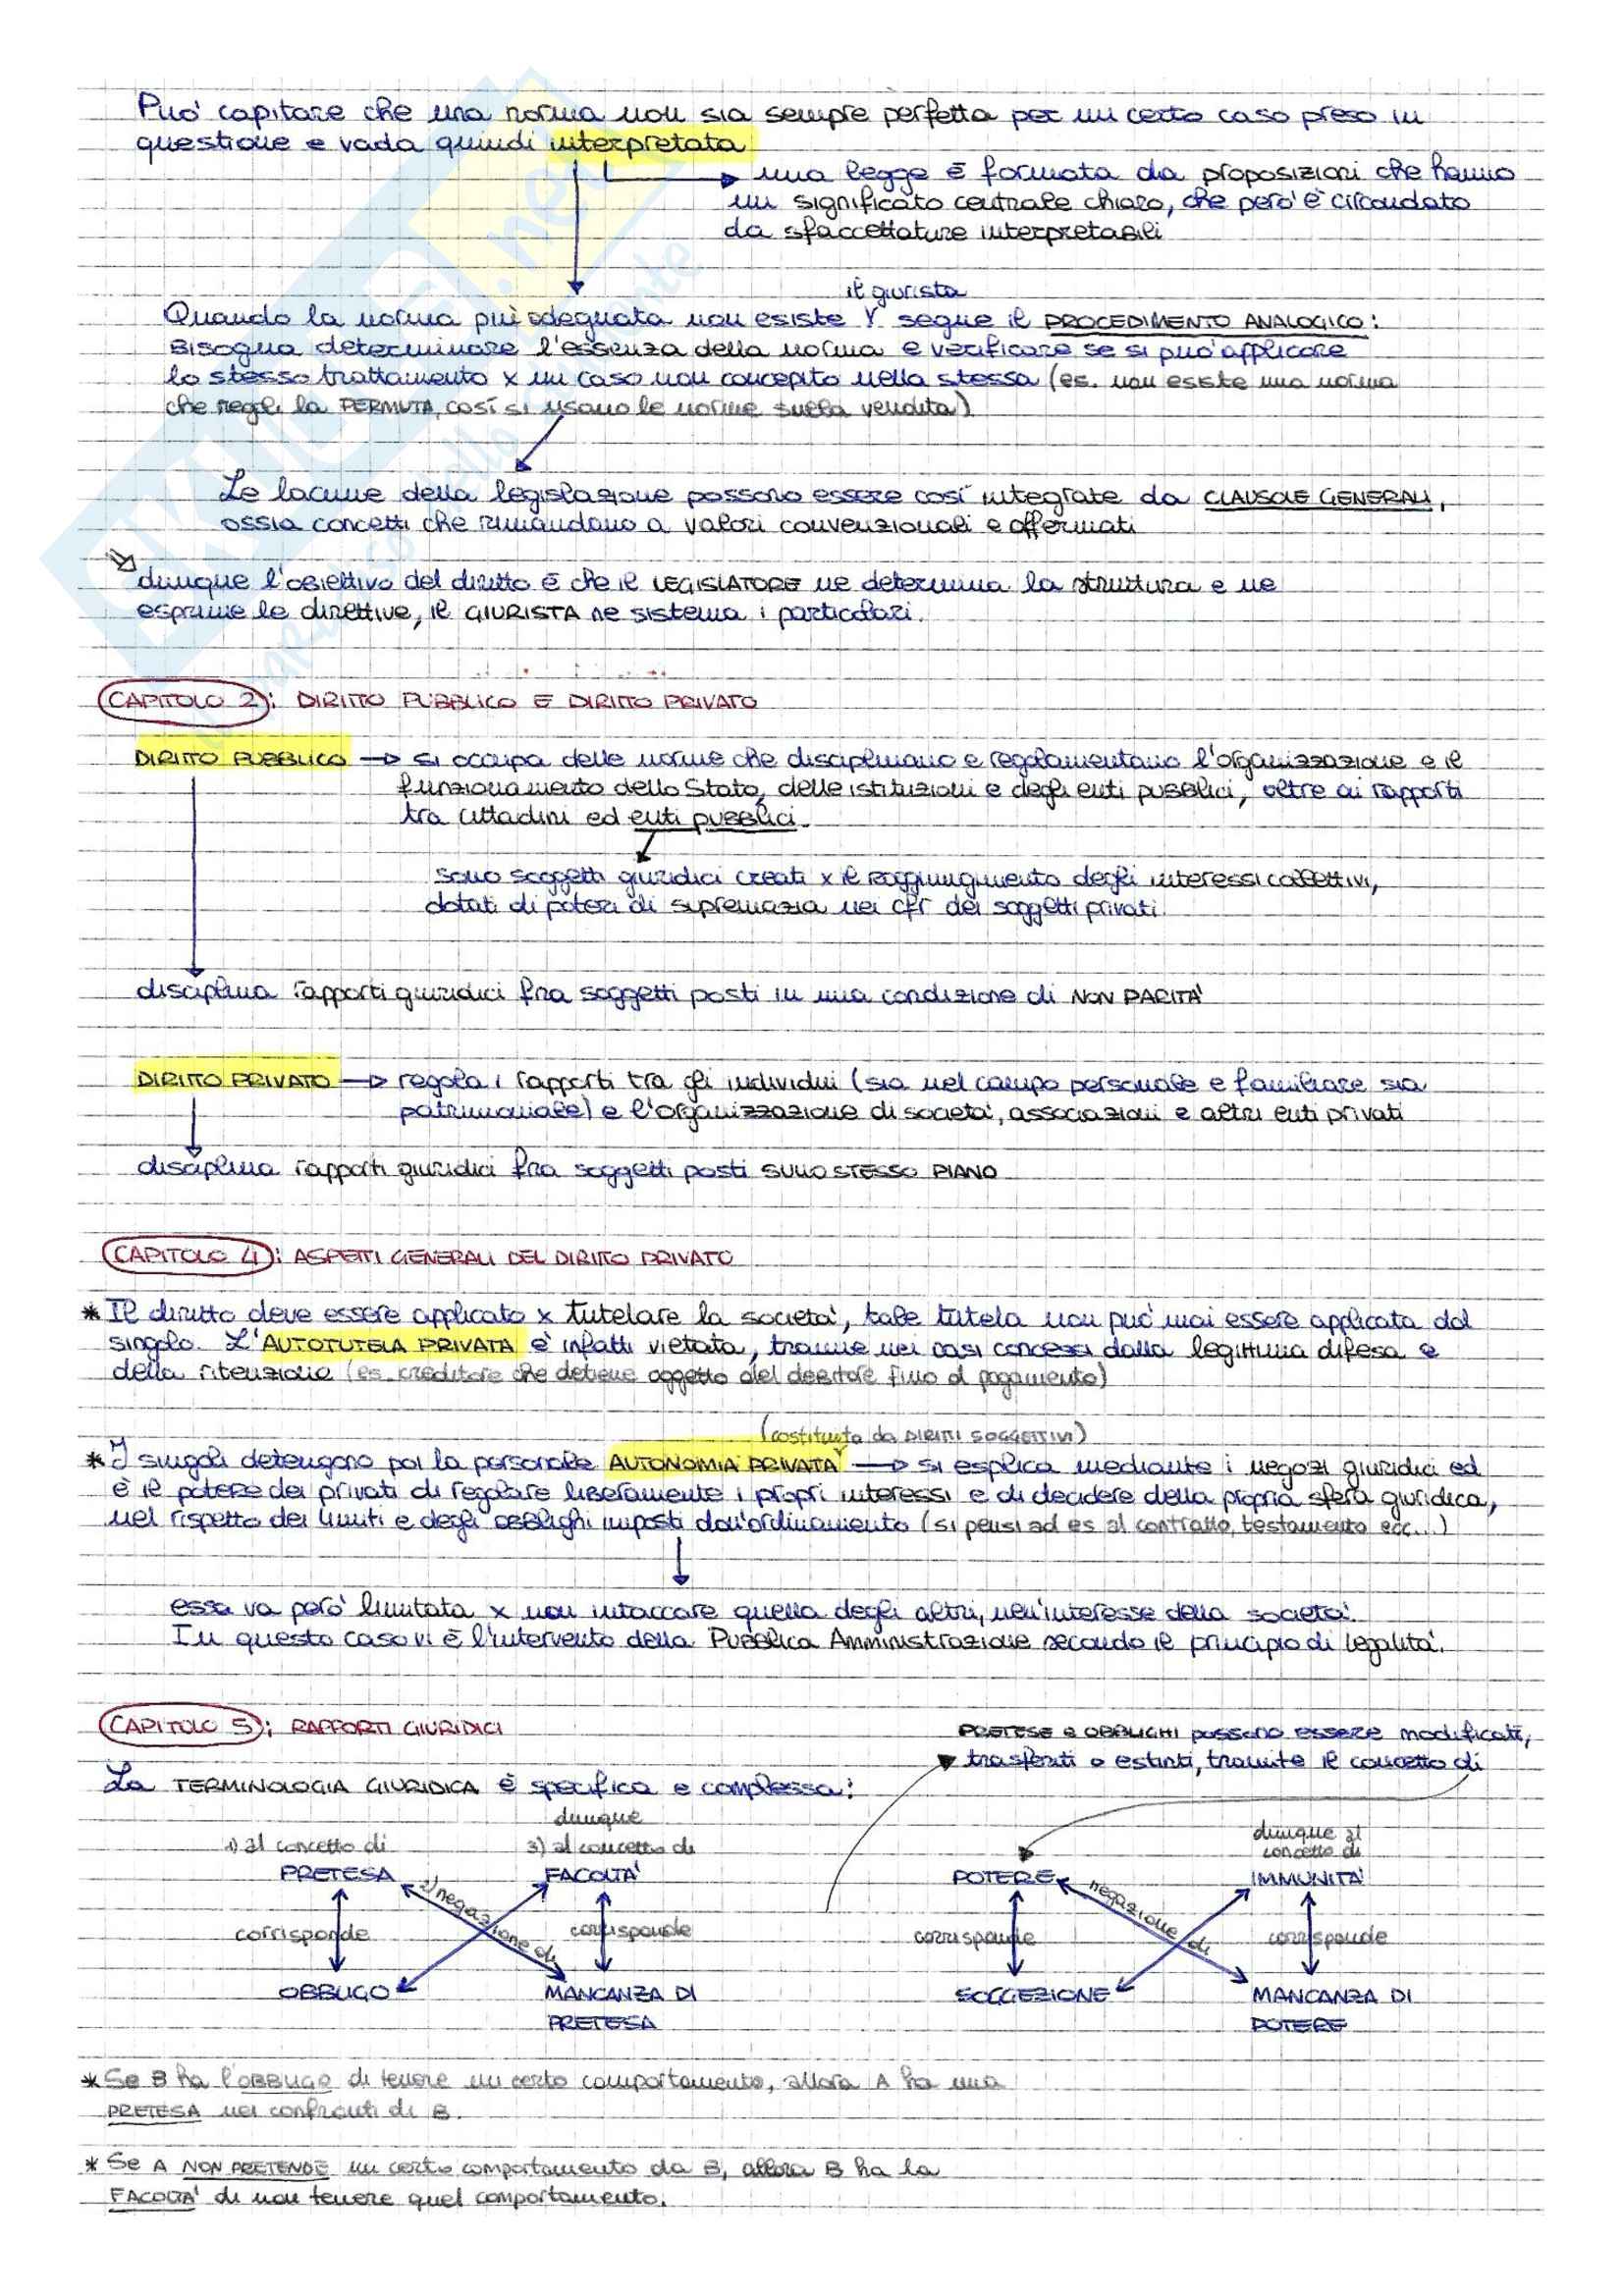 Può capitare che una norma non sia sempre perfetta per un certo caso preso in
questione e vada quindi interpretata
una legge è formata da proposizioni che hanno
un significato centrale chiaro, che però è circondato
da sfaccettature interpretabili
il giurista
Quando la norma più adeguata non esiste Y segue il PROCEDIMENTO ANALOGICO:
bisogna determinare l'essenza della norma e verificare se si può applicare
lo stesso trattamento x un caso non concepito nella stessa (es. non esiste una norma
che regoli la PERMUTA, così si usano le norme sulla vendita)
Le lacune della legislazione possono essere così integrate da CLAUSOLE GENERALI,
ossia concetti che rimandano a valori convenzionali e affermati
dunque l'obiettivo del diritto è che il LEGISLATORE ne determina la struttura e ne
esprime le direttive, il GIURISTA ne sistema i particolari.
CAPITOLO 2: DIRITTO PUBBLICO E DIRITTO PRIVATO
DIRITTO PUBBLICO → si occupa delle norme che disciplinano e regolamentano l'organizzazione e il
funzionamento dello Stato, delle istituzioni e degli enti pubblici, oltre ai rapporti
tra cittadini ed enti pubblici.
sono soggetti giuridici creati x il raggiungimento degli interessi collettivi,
dotati di poteri di supremazia nei cfr dei soggetti privati.
disciplina rapporti giuridici fra soggetti posti in una condizione di NON PARITA'
DIRITTO PRIVATO → regola i rapporti tra gli individui (sia nel campo personale e familiare sia
patrimoniale) e l'organizzazione di società, associazioni e altri enti privati
disciplina rapporti giuridici fra soggetti posti SULLO STESSO PIANO
CAPITOLO 4: ASPETTI GENERALI DEL DIRITTO PRIVATO
* Il diritto deve essere applicato x tutelare la società, tale tutela non può mai essere applicata dal
singolo. L'AUTOTUTELA PRIVATA è infatti vietata, tranne nei casi concessi dalla legittima difesa e
della ritenzione (es. creditore che detiene oggetto del debitore fino al pagamento)
(costituita da DIRITTI SOGGETTIVI)
* I singoli detengono poi la personale AUTONOMIA PRIVATA → si esplica mediante i negozi giuridici ed
è il potere dei privati di regolare liberamente i propri interessi e di decidere della propria sfera giuridica,
nel rispetto dei limiti e degli obblighi imposti dall'ordinamento (si pensi ad es al contratto, testamento ecc...)
essa va però limitata x non intaccare quella degli altri, nell'interesse della società.
In questo caso vi è l'intervento della Pubblica Amministrazione secondo il principio di legalità.
CAPITOLO 5: RAPPORTI GIURIDICI
PRETESE e OBBLIGHI possono essere modificati,
trasferiti o estinti, tramite il concetto di
La TERMINOLOGIA GIURIDICA è specifica e complessa:
dunque
1) al concetto di
3) al concetto di
dunque al
concetto di
PRETESA
FACOLTA'
POTERE
IMMUNITA'
2) negazione di
negazione di
corrisponde
corrisponde
corrisponde
corrisponde
OBBLIGO
MANCANZA DI
PRETESA
SOGGEZIONE
MANCANZA DI
POTERE
* Se B ha l'OBBLIGO di tenere un certo comportamento, allora A ha una
PRETESA nei confronti di B.
* Se A NON PRETENDE un certo comportamento da B, allora B ha la
FACOLTA' di non tenere quel comportamento.